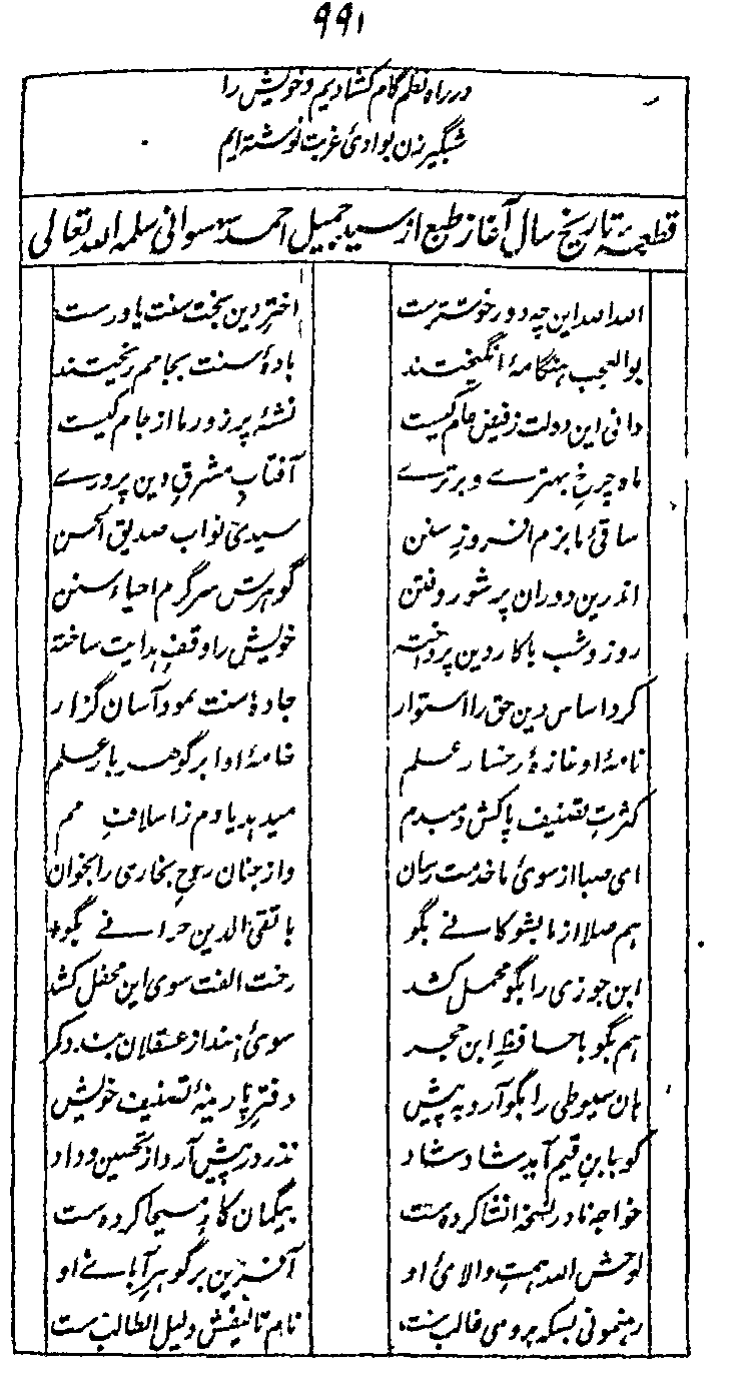 ۹۹۱
در راه نظم گام کشادیم و خویش را
شبگیر زن بوادیٔ غربت نوشته ایم
قطعهٔ تاریخ سال آغاز طبع از سید جمیل احمد سهسوانی سلمه الله تعالی
الله الله این چه دور خوشترست اختر دین بخت سنت یاورست
بوالعجب هنگامهٔ انگیختند بادهٔ سنت بجامم ریختند
دانی این دولت ز فیض عام کیست نشهٔ پر زور ما از جام کیست
ماه چرخ بهترے و برترے آفتاب مشرق دین پرورے
ساقیٔ ما بزم افروز سنن سیدی نواب صدیق الحسن
اندرین دوران پر شور و فتن گوهرش سرگرم احیاء سنن
روز و شب با کار دین پرداخته خویش را وقف هدایت ساخته
کرد اساس دین حق را استوار جادهٔ سنت نمود آسان گزار
نامهٔ او غازهٔ رخسار علم خامهٔ او ابر گوهر بار علم
کثرت تصنیف پاکش دمبدم میدهد یادم ز اسلاف امم
ای صبا از سوئ ما خدمت رسان واز جنان روح بخاری را بخوان
هم صلا از ما بشوکانے بگو با تقی الدین حرانے بگو
ابن جوزی را بگو محمل کشد رخت الفت سوی این محفل کشد
هم بگو با حافظ ابن حجر سوئ هند از عسقلان بندد کمر
هان سیوطی را بگو آرد به پیش دفتر پارینهٔ تصنیف خویش
گو بابن قیم آید شاد شاد نذر در پیش آرد از تحسین و داد
خواجهٔ ما در نسخه انشا کرده است بیگمان کار مسیحا کرده است
لوحش الله همت والائ او آفرین بر گوهر آبائے او
رهنمونی بسکه بر وی غالب ست نام تالیفش دلیل الطالب ست